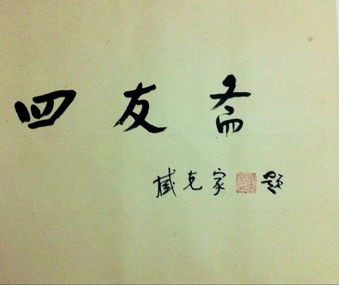 四友斋
臧克家题